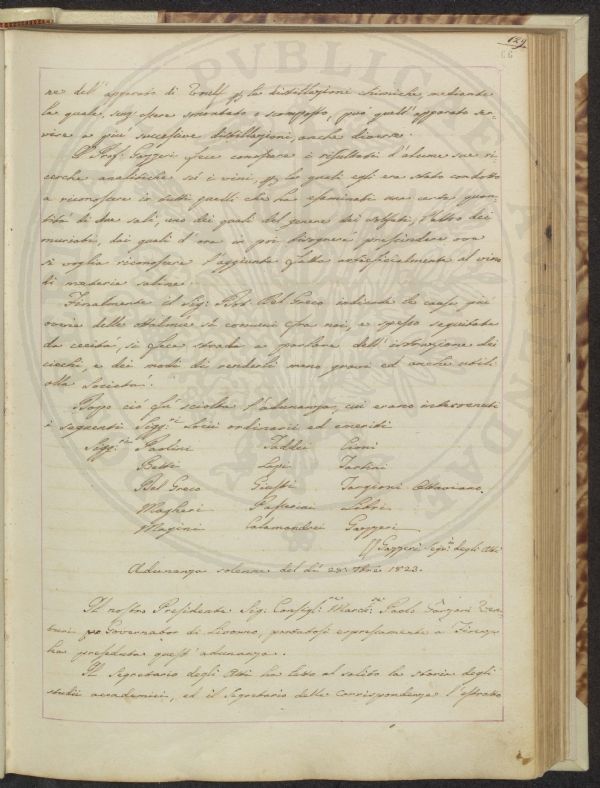 129
66
re dell'apparato di per la distillazioni chimiche, mediante
la quale, senz'essere smontato o scomposto, può quell'apparato ser-
vire a più successive distillazioni, anche diverse.
Il Prof. Gazzeri fece conoscere i risultati d'alcune sue ri-
cerche analitiche su i vini, per le quali egli era stato condotto
a riconoscere in tutti quelli che ha esaminati una certa quan-
tità di due sali, uno dei quali del genere dei solfati, l'altro dei
muriati, dai quali d'ora in poi bisognerà prescindere ove
si voglia riconoscere l'aggiunta fatta artificialmente al vino
di materie saline.
Finalmente il Sig. Prof. Del Greco indicate le cause più
ovvie delle ottalmie sì comuni fra noi, e spesso seguitate
da cecità, si fece strada a parlare dell'istruzione dei
ciechi, e dei modi di renderli meno gravi ed anche utili
alla Società.
Dopo ciò fu sciolta l'adunanza, cui erano intervenuti
i seguenti Sigg.ri Socii ordinarii ed emeriti
Sigg.ri Paolini Taddei Cioni
Betti Lapi Tartini
Del Greco Giusti Targioni Ottaviano.
Magheri Passerini Libri
Magini Calamandrei Gazzeri
G. Gazzeri Seg.rio degli Atti
Adunanza solenne del dì 28 1823.
Il nostro Presidente Sig. Consigl.re March.se Paolo Garzoni Ven-
turi Governator di Livorno, portatosi espressamente a Firenze
ha preseduta quest'adunanza.
Il Segretario degli Atti ha letto al solito la storia degli
studii accademici, ed il Segretario delle Corrispondenze l'estratto